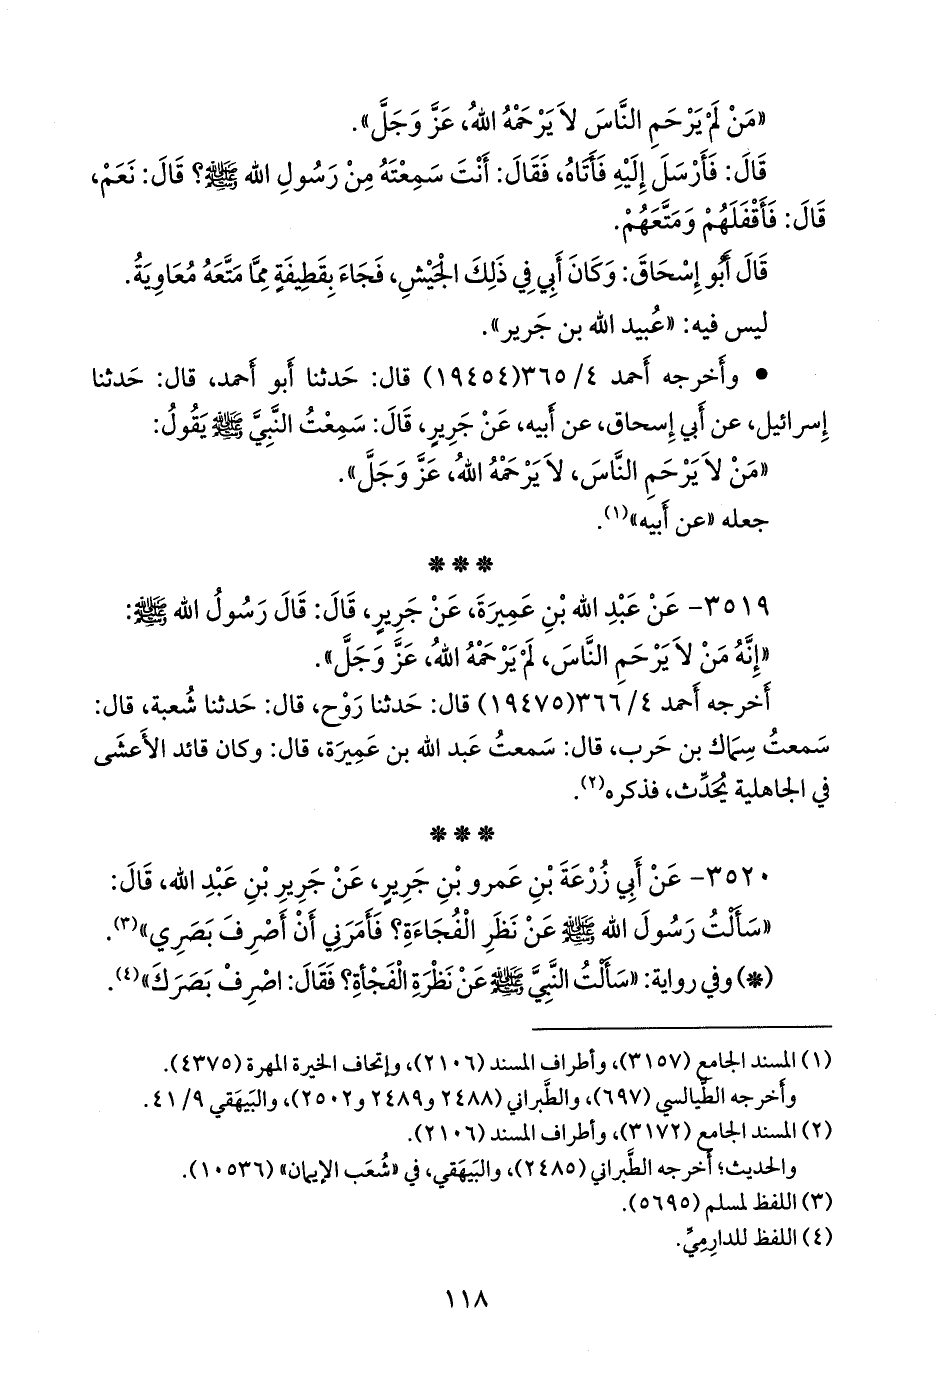 «مَنْ لَمْ يَرْحَمِ النَّاسَ لاَ يَرْحَمْهُ اللهُ، عَزَّ وَجَلَّ».
قَالَ: فَأَرْسَلَ إِلَيْهِ فَأَتَاهُ، فَقَالَ: أَنْتَ سَمِعْتَهُ مِنْ رَسُولِ الله ﷺ؟ قَالَ: نَعَمْ،
قَالَ: فَأَقْفَلَهُمْ وَمَتَّعَهُمْ.
قَالَ أَبُو إِسْحَاقَ: وَكَانَ أَبِي فِي ذَلِكَ الْجَيْشِ، فَجَاءَ بِقَطِيفَةٍ مِمَّا مَتَّعَهُ مُعَاوِيَةُ.
ليس فيه: «عُبيد الله بن جَرير».
• وأَخرجه أَحمد ٤/ ٣٦٥(١٩٤٥٤) قال: حَدثنا أَبو أَحمد، قال: حَدثنا
إِسرائيل، عن أَبي إِسحاق، عن أَبيه، عَنْ جَرِيرٍ، قَالَ: سَمِعْتُ النَّبِيَّ ﷺ يَقُولُ:
«مَنْ لاَ يَرْحَمِ النَّاسَ، لاَ يَرْحَمْهُ اللهُ، عَزَّ وَجَلَّ».
جعله «عن أَبيه»(١).
* * *
٣٥١٩- عَنْ عَبْدِ الله بْنِ عَمِيرَةَ، عَنْ جَرِيرٍ، قَالَ: قَالَ رَسُولُ الله ﷺ:
«إِنَّهُ مَنْ لاَ يَرْحَمِ النَّاسَ، لَمْ يَرْحَمْهُ اللهُ، عَزَّ وَجَلَّ».
أَخرجه أَحمد ٤/ ٣٦٦(١٩٤٧٥) قال: حَدثنا رَوْح، قال: حَدثنا شُعبة، قال:
سَمعتُ سِمَاك بن حَرب، قال: سَمعتُ عَبد الله بن عَمِيرَة، قال: وكان قائد الأَعشَى
في الجاهلية يُحَدِّث، فذكره(٢).
* * *
٣٥٢٠- عَنْ أَبِي زُرْعَةَ بْنِ عَمرو بْنِ جَرِيرٍ، عَنْ جَرِيرِ بْنِ عَبْدِ الله، قَالَ:
«سَأَلْتُ رَسُولَ الله ﷺ عَنْ نَظَرِ الْفُجَاءَةِ؟ فَأَمَرَنِي أَنْ أَصْرِفَ بَصَرِي»(٣).
(*) وفي رواية: «سَأَلْتُ النَّبِيَّ ﷺ عَنْ نَظْرَةِ الْفَجْأَةِ؟ فَقَالَ: اصْرِفْ بَصَرَكَ»(٤).
(١) المسند الجامع (٣١٥٧)، وأطراف المسند (٢١٠٦)، وإتحاف الخيرة المهرة (٤٣٧٥).
وأَخرجه الطَّيالسي (٦٩٧)، والطَّبراني (٢٤٨٨ و٢٤٨٩ و٢٥٠٢)، والبَيهَقي ٩/ ٤١.
(٢) المسند الجامع (٣١٧٢)، وأطراف المسند (٢١٠٦).
والحديث؛ أَخرجه الطَّبراني (٢٤٨٥)، والبَيهَقي، في «شُعَب الإيمان» (١٠٥٣٦).
(٣) اللفظ لمسلم (٥٦٩٥).
(٤) اللفظ للدارِمِيِّ.
١١٨